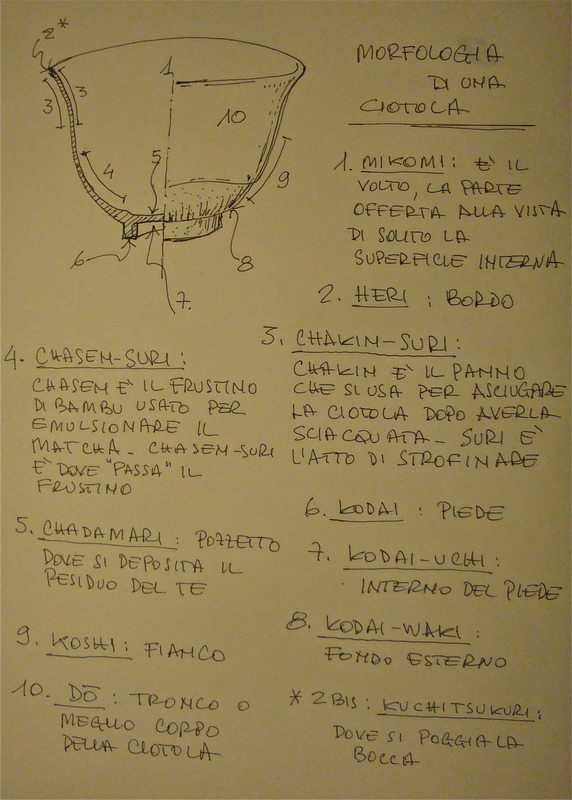 2*
1
3
3
10
4
5
9
6
8
7.
MORFOLOGIA
DI UNA
CIOTOLA
1. MIKOMI: E' IL
VOLTO, LA PARTE
OFFERTA ALLA VISTA
DI SOLITO LA
SUPERFICIE INTERNA
2. HERI : BORDO
3. CHAKIN-SURI:
CHAKIN E' IL PANNO
CHE SI USA PER ASCIUGARE
LA CIOTOLA DOPO AVERLA
SCIACQUATA - SURI E'
L'ATTO DI STROFINARE
4. CHASEN-SURI:
CHASEN E' IL FRUSTINO
DI BAMBU USATO PER
EMULSIONARE IL
MATCHA - CHASEN-SURI
E' DOVE "PASSA" IL
FRUSTINO
5. CHADAMARI: POZZETTO
DOVE SI DEPOSITA IL
RESIDUO DEL TE
6. KODAI : PIEDE
7. KODAI-UCHI:
INTERNO DEL PIEDE
8. KODAI-WAKI:
FONDO ESTERNO
9. KOSHI: FIANCO
10. DŌ : TRONCO O
MEGLIO CORPO
DELLA CIOTOLA
* 2BIS: KUCHITSUKURI:
DOVE SI POGGIA LA
BOCCA